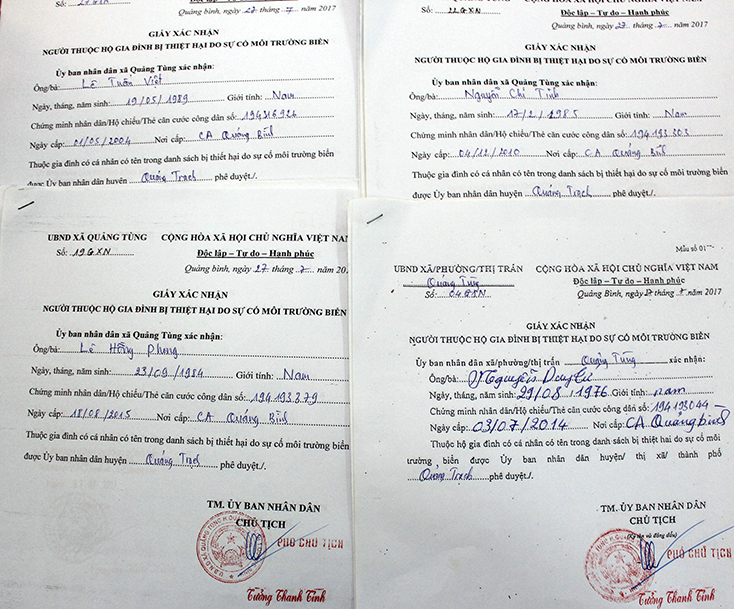 Số: 21GXN
Quảng bình, ngày 27 tháng 7 năm 2017
GIẤY XÁC NHẬN
NGƯỜI THUỘC HỘ GIA ĐÌNH BỊ THIỆT HẠI DO SỰ CỐ MÔI TRƯỜNG BIỂN
Ủy ban nhân dân xã Quảng Tùng xác nhận:
Ông/bà: Lê Tuấn Việt
Ngày, tháng, năm sinh: 19/05/1989 Giới tính: Nam
Chứng minh nhân dân/Hộ chiếu/Thẻ căn cước công dân số: 194316924
Ngày cấp: 01/05/2004 Nơi cấp: CA Quảng Bình
Thuộc gia đình có cá nhân có tên trong danh sách bị thiệt hại do sự cố môi trường biển
được Ủy ban nhân dân huyện Quảng Trạch phê duyệt./.
Số: 22GXN Độc lập – Tự do – Hạnh phúc
Quảng bình, ngày 27 tháng 7 năm 2017
GIẤY XÁC NHẬN
NGƯỜI THUỘC HỘ GIA ĐÌNH BỊ THIỆT HẠI DO SỰ CỐ MÔI TRƯỜNG BIỂN
Ủy ban nhân dân xã Quảng Tùng xác nhận:
Ông/bà: Nguyễn Chí Tình
Ngày, tháng, năm sinh: 17/2/1985 Giới tính: Nam
Chứng minh nhân dân/Hộ chiếu/Thẻ căn cước công dân số: 194193303
Ngày cấp: 04/12/2010 Nơi cấp: CA Quảng Bình
Thuộc gia đình có cá nhân có tên trong danh sách bị thiệt hại do sự cố môi trường biển
được Ủy ban nhân dân huyện Quảng Trạch phê duyệt./.
UBND XÃ QUẢNG TÙNG CỘNG HÒA XÃ HỘI CHỦ NGHĨA VIỆT NAM
Số: 19GXN Độc lập – Tự do – Hạnh phúc
Quảng bình, ngày 27 tháng 7 năm 201
GIẤY XÁC NHẬN
NGƯỜI THUỘC HỘ GIA ĐÌNH BỊ THIỆT HẠI DO SỰ CỐ MÔI TRƯỜNG BIỂN
Ủy ban nhân dân xã Quảng Tùng xác nhận:
Ông/bà: Lê Hồng Phong
Ngày, tháng, năm sinh: 23/09/1984 Giới tính: Nam
Chứng minh nhân dân/Hộ chiếu/Thẻ căn cước công dân số: 194193379
Ngày cấp: 18/08/2015 Nơi cấp: CA Quảng Bình
Thuộc gia đình có cá nhân có tên trong danh sách bị thiết hại do sự cố môi trường biển
được Ủy ban nhân dân huyện Quảng Trạch phê duyệt./.
TM. ỦY BAN NHÂN DÂN
CHỦ TỊCH
PHÓ CHỦ TỊCH
Tưởng Thanh Tình
Mẫu số 01
UBND XÃ/PHƯỜNG/THỊ TRẤN CỘNG HÒA XÃ HỘI CHỦ NGHĨA VIỆT NAM
Quảng Tùng Độc lập – Tự do – Hạnh phúc
Số: 04GXN Quảng Bình, ngày tháng năm 2017
GIẤY XÁC NHẬN
NGƯỜI THUỘC HỘ GIA ĐÌNH BỊ THIỆT HẠI DO SỰ CỐ MÔI TRƯỜNG BIỂN
Ủy ban nhân dân xã/phường/thị trấn Quảng Tùng xác nhận:
Ông/bà: Nguyễn
Ngày, tháng, năm sinh: 29/08/1976 Giới tính: nam
Chứng minh nhân dân/Hộ chiếu/Thẻ căn cước công dân số: 194193044
Ngày cấp: 03/07/2014 Nơi cấp: CA Quảng bình
Thuộc hộ gia đình có cá nhân có tên trong danh sách bị thiệt hại do sự cố môi
trường biển được Ủy ban nhân dân huyện/ thị xã/ thành phố
Quảng Trạch phê duyệt./.
TM. ỦY BAN NHÂN DÂN
CHỦ TỊCH
(Ký tên và đóng dấu)
PHÓ CHỦ TỊCH
Tưởng Thanh Tình